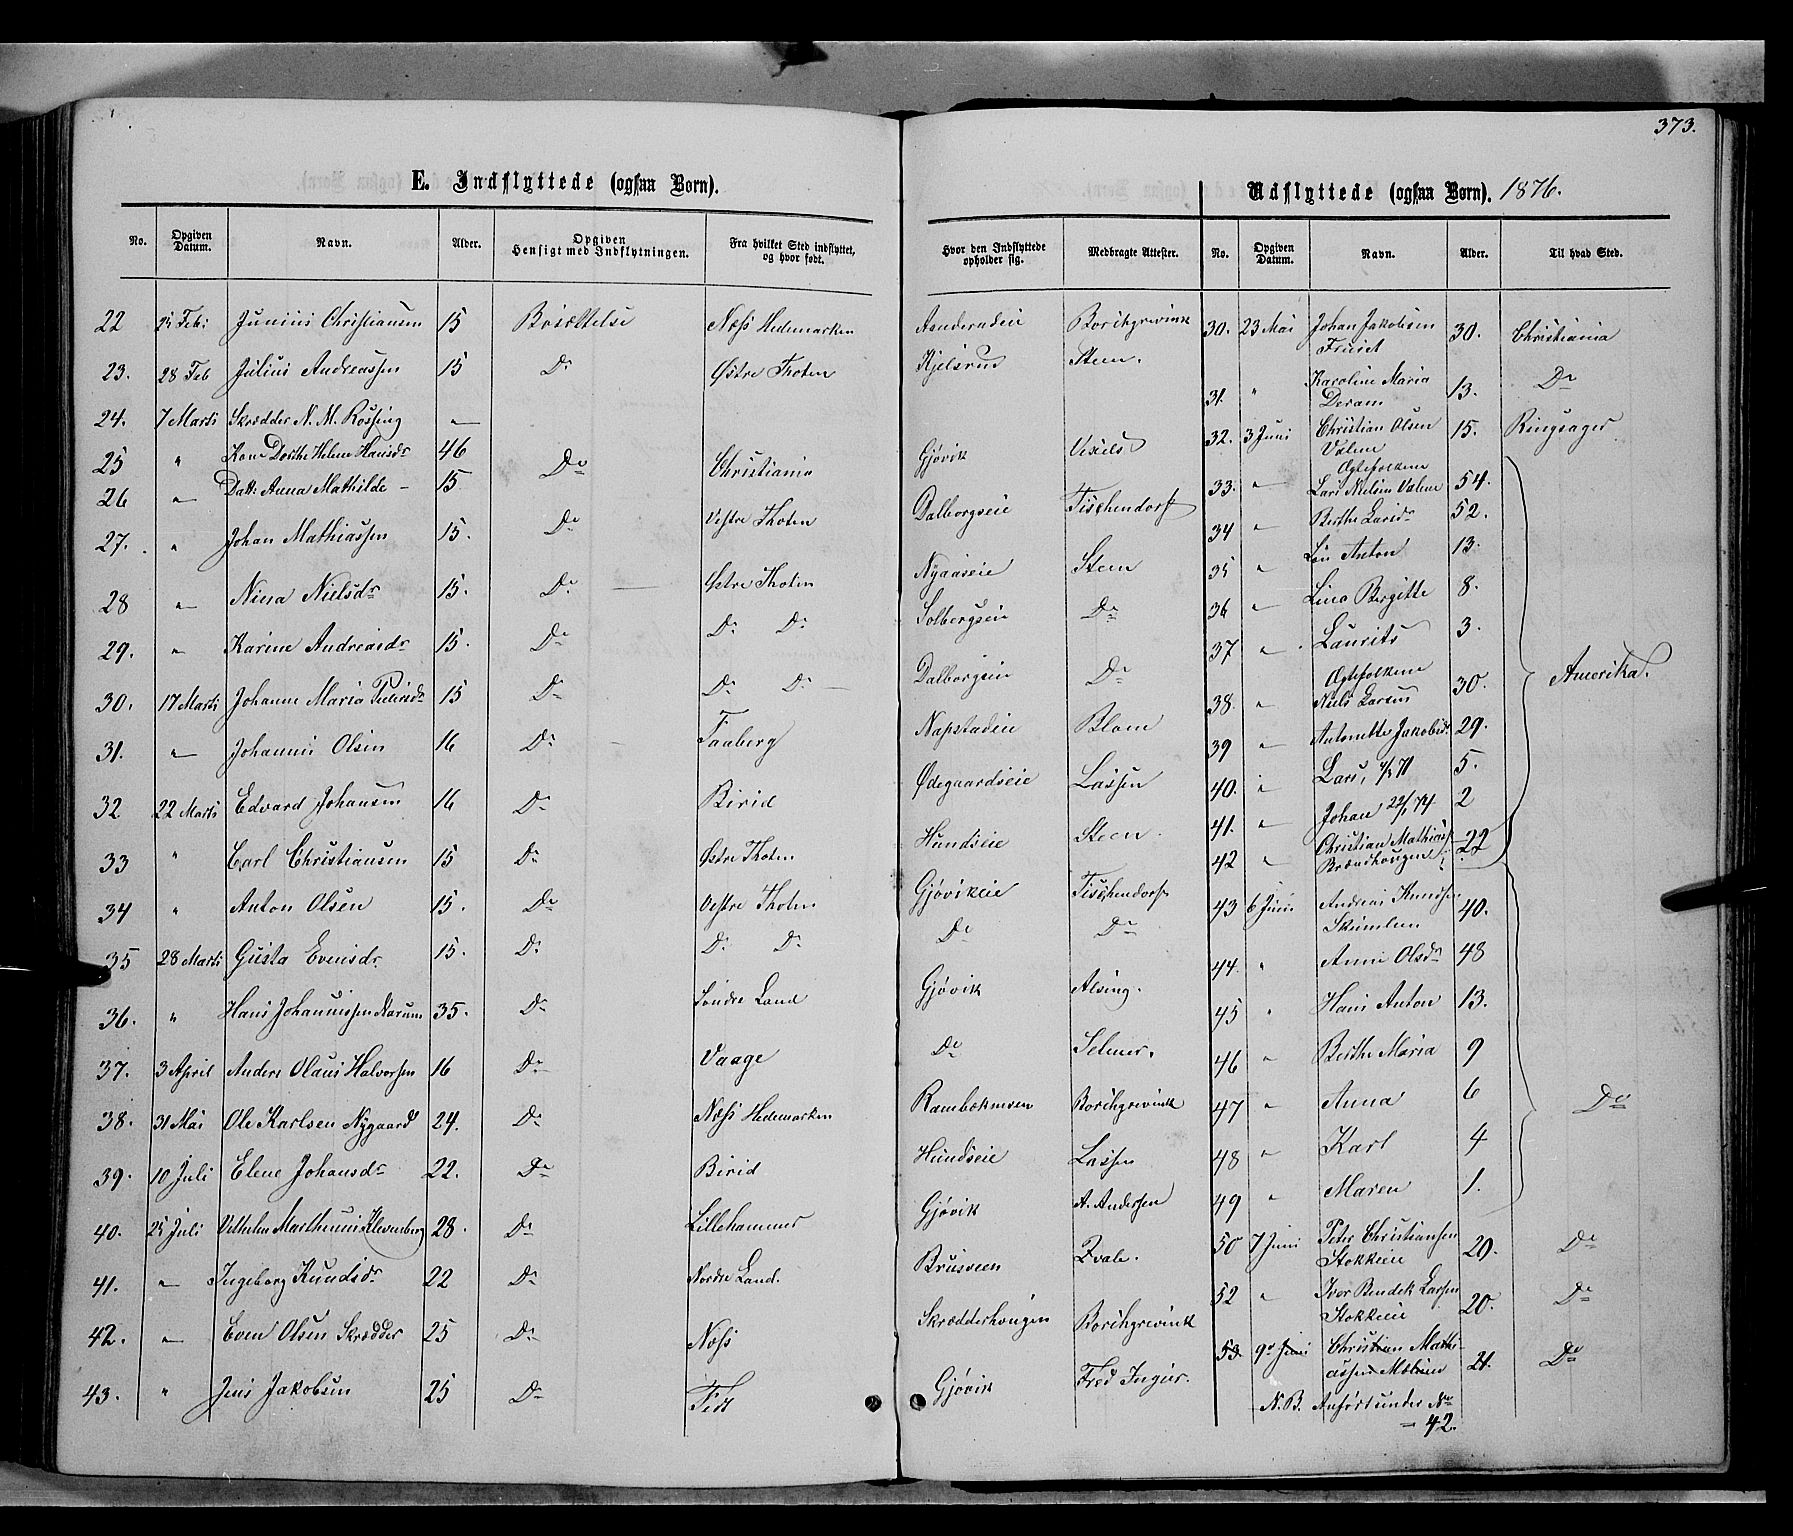 373.
E. Indflyttede (ogsaa Børn).
No. Opgiven Datum. Navn. Alder. Opgiven Hensigt med Indflytningen. Fra hvilket Sted indflyttet, og hvor født. Hvor den Indflyttede opholder sig. Medbragte Attester.
22 25 Feb: Junius Christiansen 15 Bosættelse Næss Hedemarken Borchgrevink
23. 28 Feb Julius Andreassen 15 Do Østre Thoten Kjelsrud Steen.
24. 7 Marts Skrædder N. M. Røssing —
25 " Kone Dorthe Helene Hansdr 46 Do Christiania Gjøvik Vexels
26 " Datt: Anna Mathilde – 15
27. " Johan Mathiassen 15. Do Vestre Thoten Dalborgseie Tischendorf
28 " Nina Nielsdr 15. Do Østre Thoten Nyaaseie Steen
29. " Karine Andreasdr 15. Do Do Do Solbergseie Do
30. 17 Marts Johanne Maria Pedersdr 15 Do Do Do Dalborgseie Do
31. " Johannes Olsen 16 Do Faaberg Napstadeie Blom
32 22 Marts Edvard Johansen 16 Do Birid Ødegaardseie Lassen
33 " Carl Christiansen 15 Do Østre Thoten Hundseie Steen.
34 " Anton Olsen 15. Do Vestre Thoten Gjøvikeie Tischendorf
35 28 Marts Gusta Evensdr. 15. Do Do Do Do Do
36. " Hans Johannissen Narum 35. Do Søndre Land Gjøvik Alsing.
37. 3 April Anders Olaus Halvorsen 16 Do Vaage Do Selmer.
38. 31 Mai Ole Karlsen Nygaard 24. Do Næss Hedemarken Borchgrevink
39. 10 Juli Elene Johansdr 22. Do Birid Hundseie Lassen
40. 25 Juli Vilhelm Marthinius 28. Do Lillehammer Gjøvik A. Andersen
41. " Ingeborg Knudsdr 22 Do Nordre Land. Brusveen
42. " Even Olsen Skrædder 25 Do Næss Skrædderhougen Borchgrevink
43. " Jens Jakobsen 25 Do Gjøvik
Udflyttede (ogsaa Børn). 1876.
No. Opgiven Datum. Navn. Alder. Til hvad Sted.
30. 23 Mai Johan Jakobsen 30. Christiania
31. " Karoline Maria 13. Do
32. 3 Juni Christian Olsen 15. Ringsager
Valene
Ægtefolkene
33. " Lars Nielsen Valene 54.
34 " Berthe Larsdr 52.
35 " Anton 13.
36 " Lina Bergitte 8.
37 " Laurits 3.
Ægtefolkene Amerika.
38. " Niels Larsen 30.
39 " Antonette Jakobsdr 29.
40. " Lars, 5.
41. " Johan 22/1 74 2
42 " Christian Mathiass: 22
Brændhougen
43 6 Juni Andreas Knudsen 40.
44. " Anne Olsdr 48
45 " Hans Anton 13.
46 " Berthe Maria 9
47 " Anna 6 Do
48 " Karl 4
49 " Maren 1.
50 7 Juni Peter Christiansen 20. Do
Stokkeeie
52 " Iver Bendik Larsen 20. Do
Stokkeeie
53. 9de Juni Christian Mathi- 21. Do
assen
N.B. Anført under No
42.